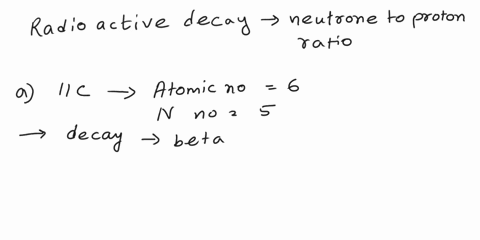 Radio active decay → neutrone to proton
ratio
a) 11C → Atomic no = 6
N no = 5
→ decay → beta